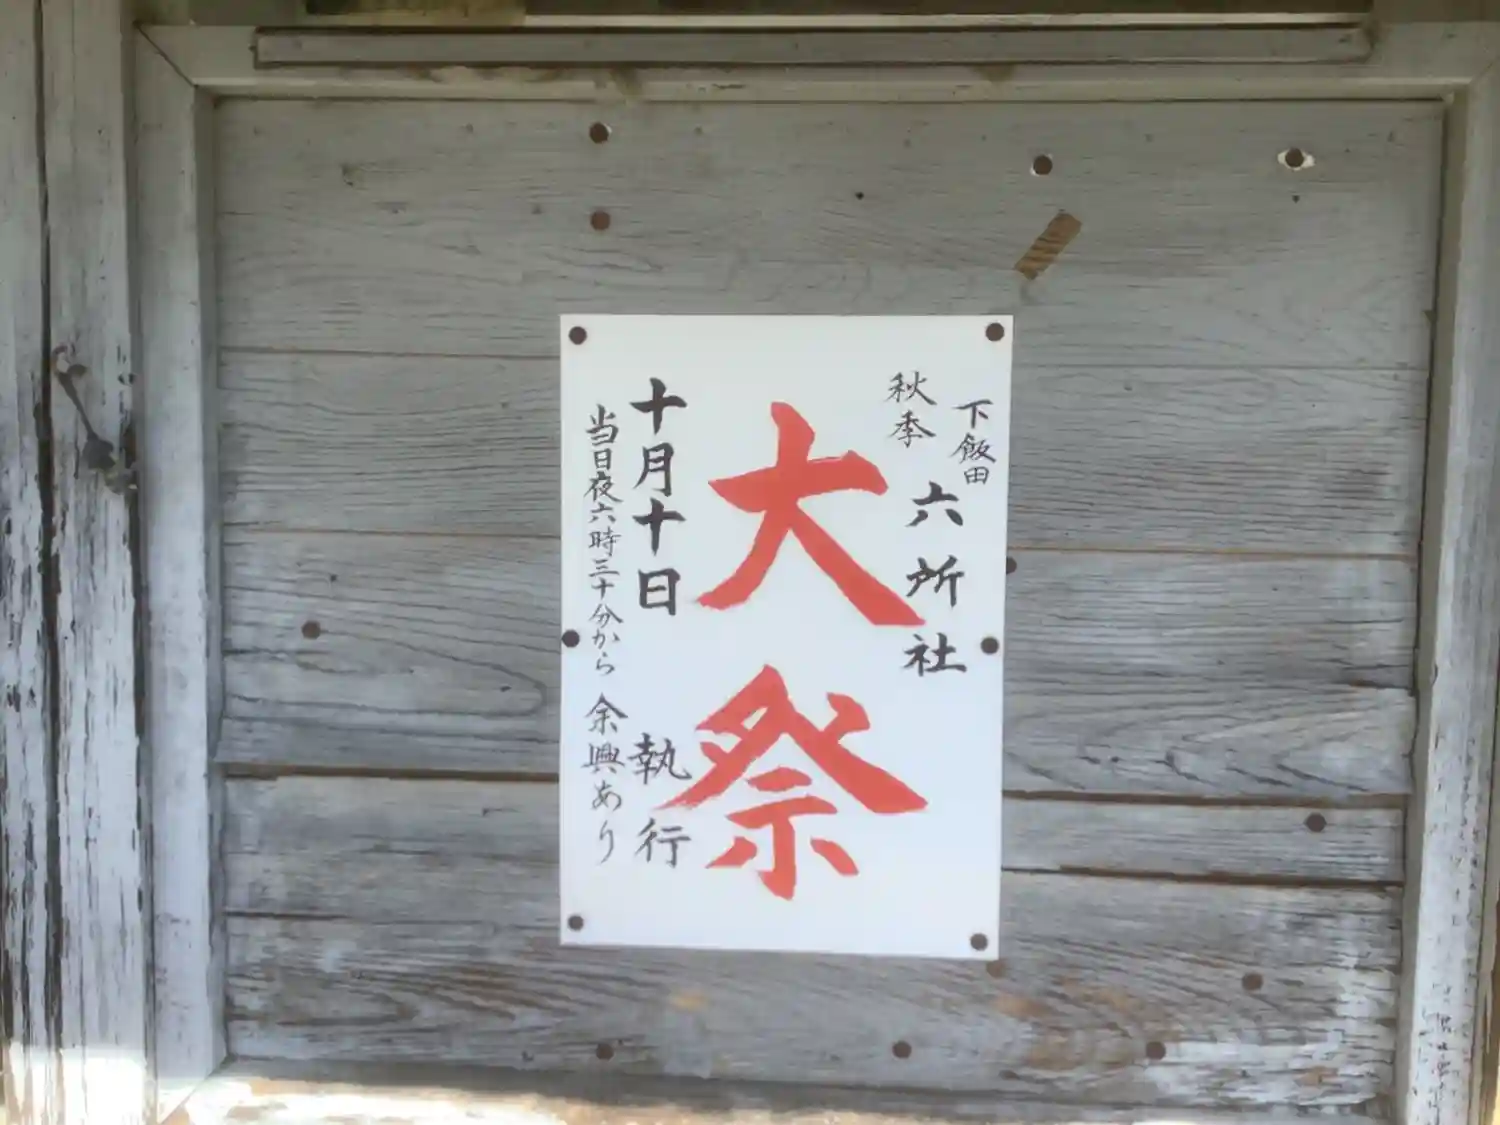 下飯田
六所社
秋季
大祭
十月十日 執行
当日夜六時三十分から 余興あり